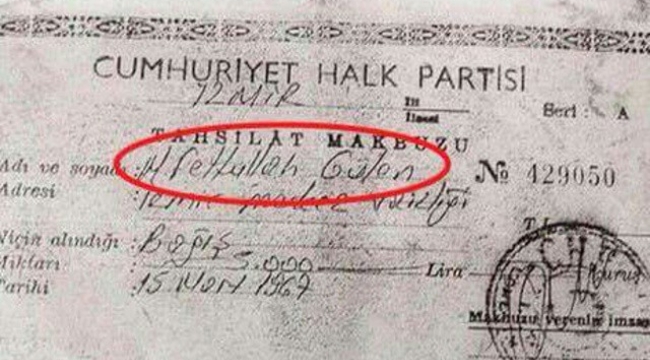 CUMHURİYET HALK PARTİSİ
İZMİR İli
İlçesi
Seri : A
TAHSİLÂT MAKBUZU
Adı ve soyadı : M. Fethullah Gülen
№ 429050
Adresi : İzmir merkez vaizliği
T. L.
Niçin alındığı : Bağış
Miktarı : 5.000 Lira Kuruş
Tarihi : 15 Mart 1967
Makbuzu verenin imzası